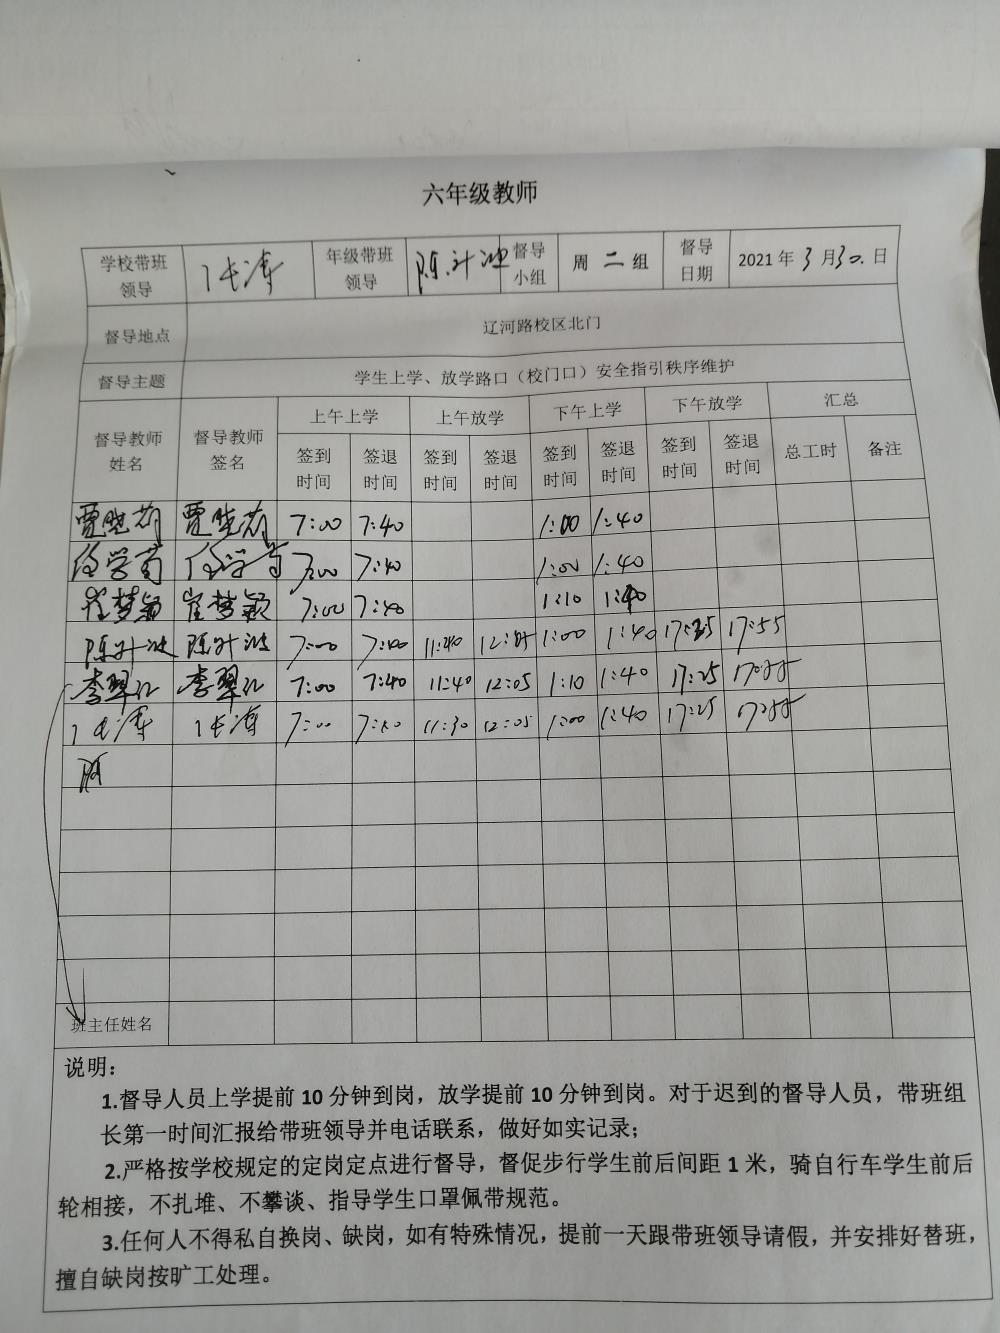 六年级教师
学校带班领导 年级带班领导 陈升 督导小组 周二组 督导日期 2021年3月30.日
督导地点 辽河路校区北门
督导主题 学生上学、放学路口（校门口）安全指引秩序维护
督导教师姓名 督导教师签名 上午上学 上午放学 下午上学 下午放学 汇总
签到时间 签退时间 签到时间 签退时间 签到时间 签退时间 签到时间 签退时间 总工时 备注
贾晓莉 贾晓莉 7:00 7:40 1:00 1:40
任学菊 任学菊 7:00 7:40 1:00 1:40
崔梦颖 崔梦颖 7:00 7:40 1:10 1:40
陈升波 陈升波 7:00 7:40 11:40 12:05 1:00 1:40 17:25 17:55
李翠 李翠 7:00 7:40 11:40 12:05 1:10 1:40 17:25 17:55
7:00 7:40 11:30 12:05 1:00 1:40 17:25 17:55
班主任姓名
说明：
1.督导人员上学提前10分钟到岗，放学提前10分钟到岗。对于迟到的督导人员，带班组
长第一时间汇报给带班领导并电话联系，做好如实记录；
2.严格按学校规定的定岗定点进行督导，督促步行学生前后间距1米，骑自行车学生前后
轮相接，不扎堆、不攀谈、指导学生口罩佩带规范。
3.任何人不得私自换岗、缺岗，如有特殊情况，提前一天跟带班领导请假，并安排好替班，
擅自缺岗按旷工处理。